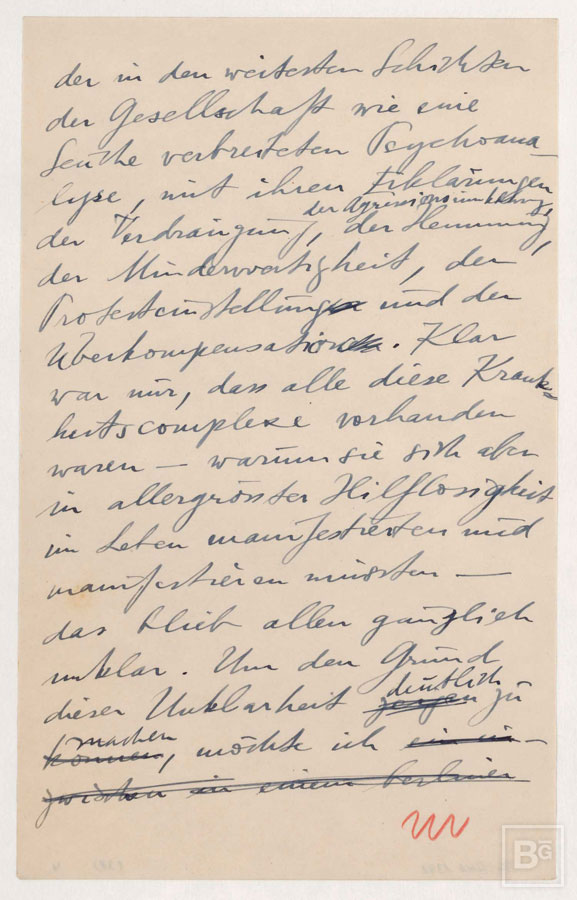 der in den weitesten Schichten
der Gesellschaft wie eine
Seuche verbreiteten Psychoana-
lyse, mit ihren Erklärungen
der Aggressionsumkehrung,
der Verdrängung, der Hemmung,
der Minderwertigkeit, der
Protesteinstellung und der
Überkompensation. Klar
war nur, dass alle diese Krank-
heitscomplexe vorhanden
waren – warum sie sich aber
in allergrösster Hilflosigkeit
im Leben manifestierten und
manifestieren mussten –
das blieb allen gänzlich
unklar. Um den Grund
deutlich
dieser Unklarheit zeigen zu
machen
können, möchte ich ein in-
zwischen in einem Berliner
BG